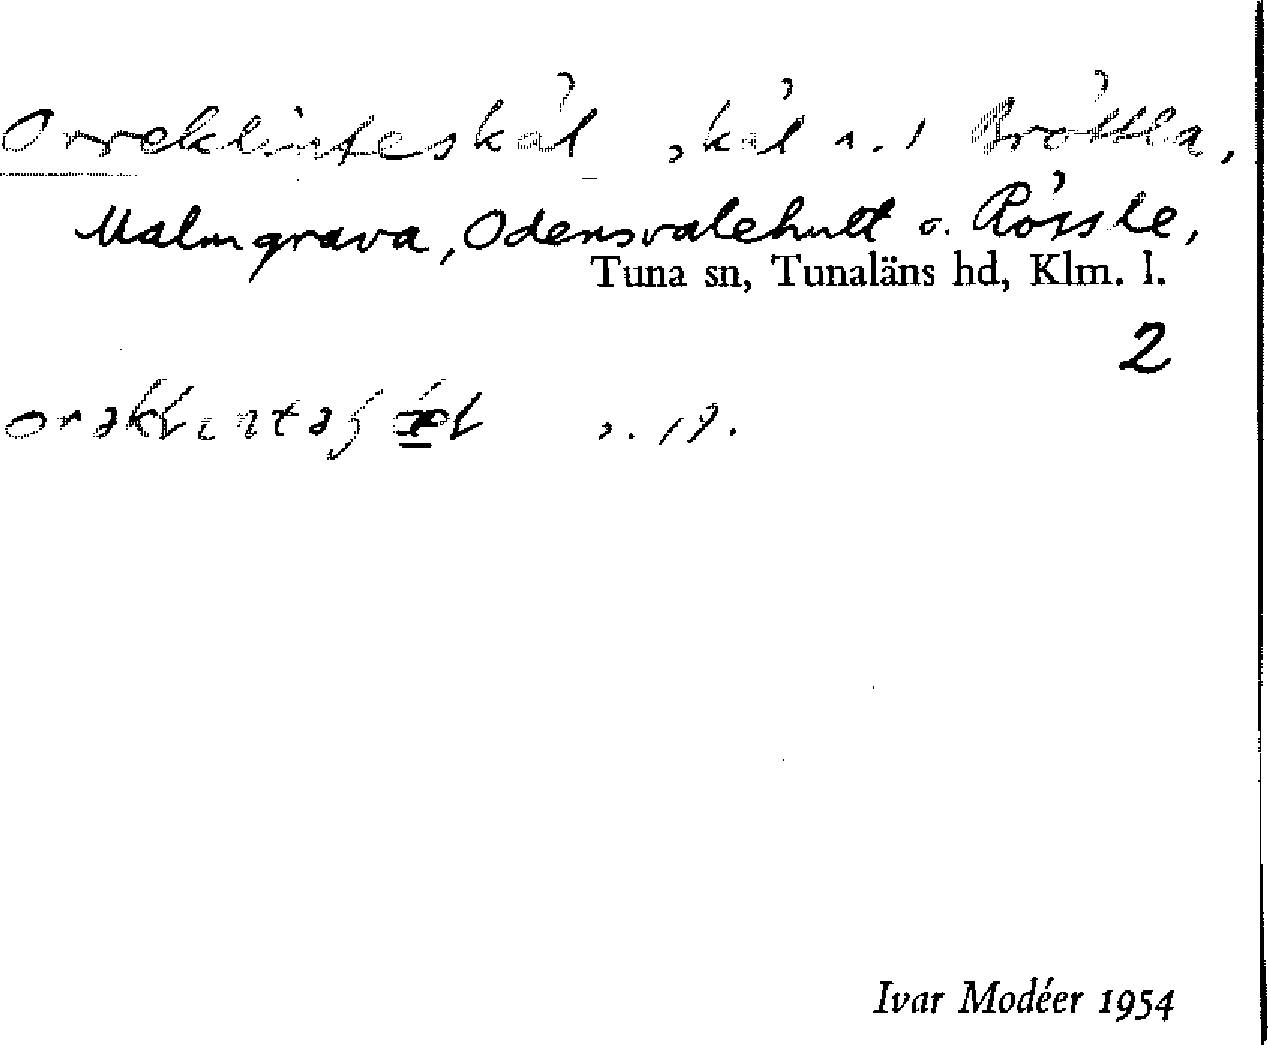 Orreklinteskål, kål n. i Bröttla,
Malmgrava, Odensvalehult o. Rössle,
Tuna sn, Tunaläns hd, Klm. l.
2
Ivar Modéer 1954